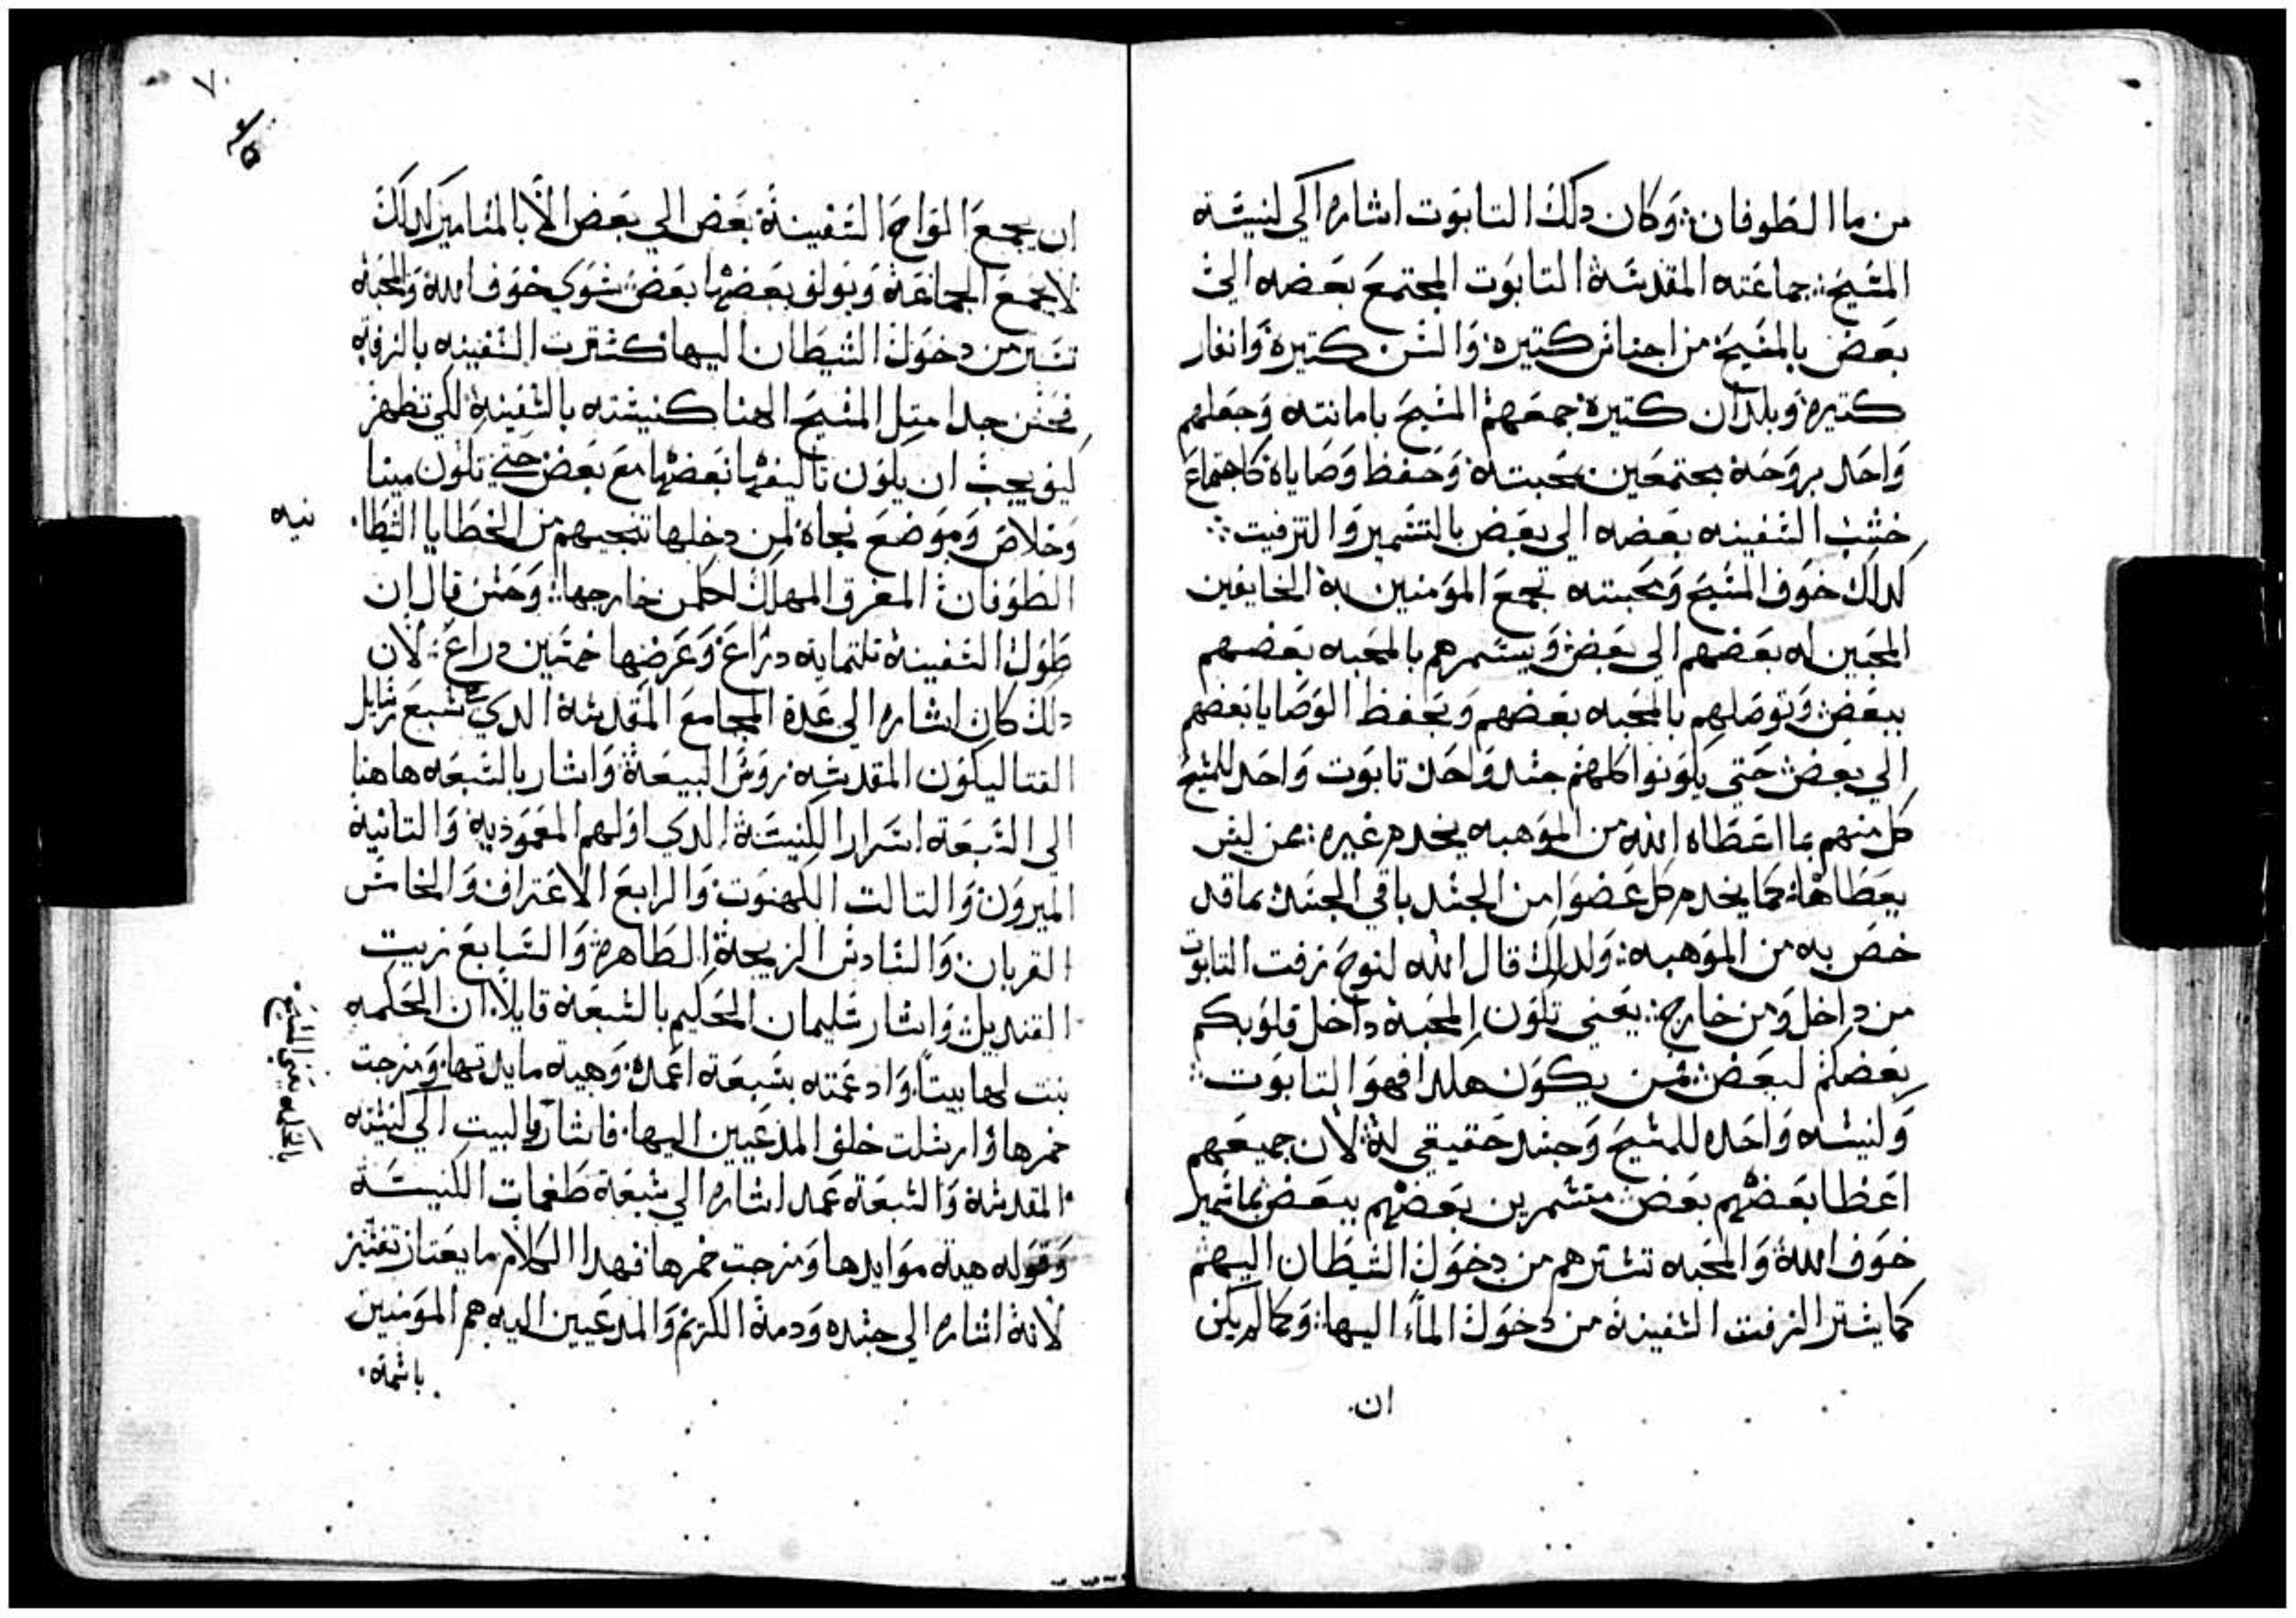 من ما الطوفان: وكان دلك التابوت اشاره الي كنيسة
المسيح: جماعته المقدسة التابوت المجتمع بعضه الي
بعض بالمسيح من اجناس كتيره والسن كتيرة وانفار
كتيره وبلدان كتيرة جمعهم المسيح بامانته وجعلهم
واحد بروحة مجتمعين بمحبتة وحفظ وصاياة كاجتماع
خشب السفينه بعضه الي بعض بالتسمير والتزفيت:
كدلك خوف المسيح ومحبته تجمع المومنين بة الخايفين
المحبين له بعضهم الي بعض ويسمرهم بالمحبه بعضهم
ببعض وتوصلهم بالمحبه بعضهم وبحفظ الوصايا بعضهم
الي بعض حتي يكونوا كلهم جسد واحد تابوت واحد للمسيح
كل منهم بما اعطاه الله من الموهبه يخدم غيره: ممن ليس
يعطاها: كما يخدم كل عضوا من الجسد باقي الجسد بما قد
خص به من الموهبه: ولدلك قال الله لنوح زفت التابوت
من داخل ومن خارج: يعني تكون المحبة داخل قلوبكم
بعضكم لبعض: فمن يكون هكدا فهو التابوت:
وكنيسه واحده للمسيح وجسد حقيقي لة: لان جميعهم
اعظا بعضهم بعض متسمرين بعضهم ببعض بمسامير
خوف الله والمحبه تسترهم من دخول الشيطان اليهم
كما يستر الزفت السفينة من دخول الماء اليها: وكما لم يكن
ان
٧٠
ان يجمع الواح السفينة بعض الي بعض الا بالمسامير كدلك
لا يجمع الجماعة ويولف بعضها بعض سوي خوف الله والمحبة
تستر من دخول الشيطان اليها كسترت السفينه بالزفت
فحسن جدا متل المسيح الهنا كنيسته بالسفينة لكي تظهر
كيف يجب ان يكون تاليفها بعضها مع بعض حتي تكون مينا
وخلاص وموضع نجاة لمن دخلها تنجيهم من الخطايا الشيطا
نيه
الطوفان المغرق المهلك لكلمن خارجها: وحسن قال ان
طول السفينة تلتماية دراع وعرضها خمسين دراع: لان
دلك كان اشاره الي عدة المجامع المقدسة الدي سبع رسايل
القتاليكون المقدسه روس البيعة واشار بالسبعه هاهنا
الي السبعة اسرار الكنيسة الدي اولهم المعموديه والتانية
الميرون والتالت الكهنوت والرابع الاعتراف والخامس
القربان والسادس الزيجة الطاهرة والسابع زيت
القنديل واشار سليمان الحكيم بالسبعة قايلا ان الحكمه
بنت لها بيتا وادعمته بسبعة اعمدة وهيه مايدتها ومزجت
خمرها وارسلت خلف المدعيين اليها فاشار بالبيت الي كنيسته
المقدسة والسبعة عمد اشاره الي سبعة طغمات الكنيسة
وقوله هية موايدها ومزجت خمرها فهدا الكلام ما يعتاز تفسير
لانة اشاره الي جسده ودمة الكريم والمدعيين اليه هم المومنين
باسمة
الحكمه يعني المسيح